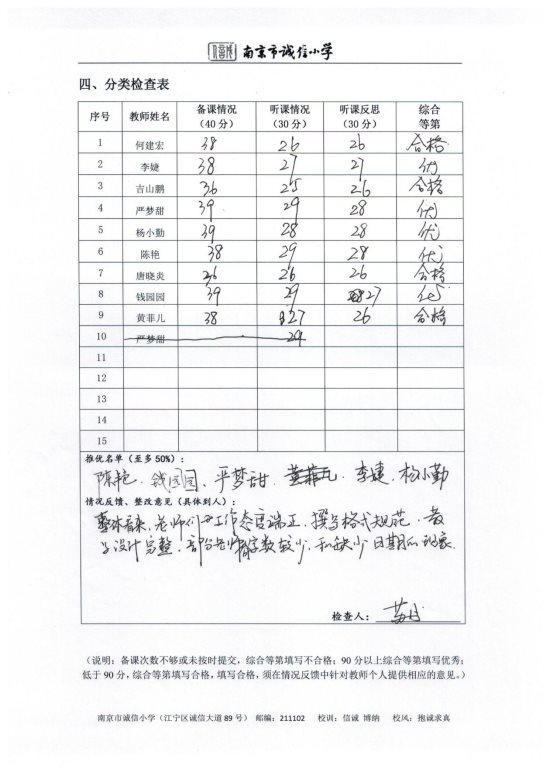 南京市诚信小学
四、分类检查表
序号 教师姓名 备课情况（40分） 听课情况（30分） 听课反思（30分） 综合等第
1 何建宏 38 26 26 合格
2 李婕 38 27 27 优
3 吉山鹏 36 25 26 合格
4 严梦甜 39 29 28 优
5 杨小勤 39 28 28 优
6 陈艳 38 29 28 优
7 唐晓炎 36 26 26 合格
8 钱园园 39 29 27 优
9 黄菲儿 38 27 26 合格
10 严梦甜 29
11
12
13
14
15
推优名单（至多50%）：
陈艳、钱园园、严梦甜 黄菲儿、李婕、杨小勤
情况反馈、整改意见（具体到人）：
整体看来，老师们的工作态度端正，撰写格式规范，教
学设计完整，部分老师字数较少，和缺少日期的现象.
检查人：
（说明：备课次数不够或未按时提交，综合等第填写不合格；90分以上综合等第填写优秀；
低于90分，综合等第填写合格，填写合格，须在情况反馈中针对教师个人提供相应的意见。）
南京市诚信小学（江宁区诚信大道89号） 邮编：211102 校训：信诚 博纳 校风：抱诚求真